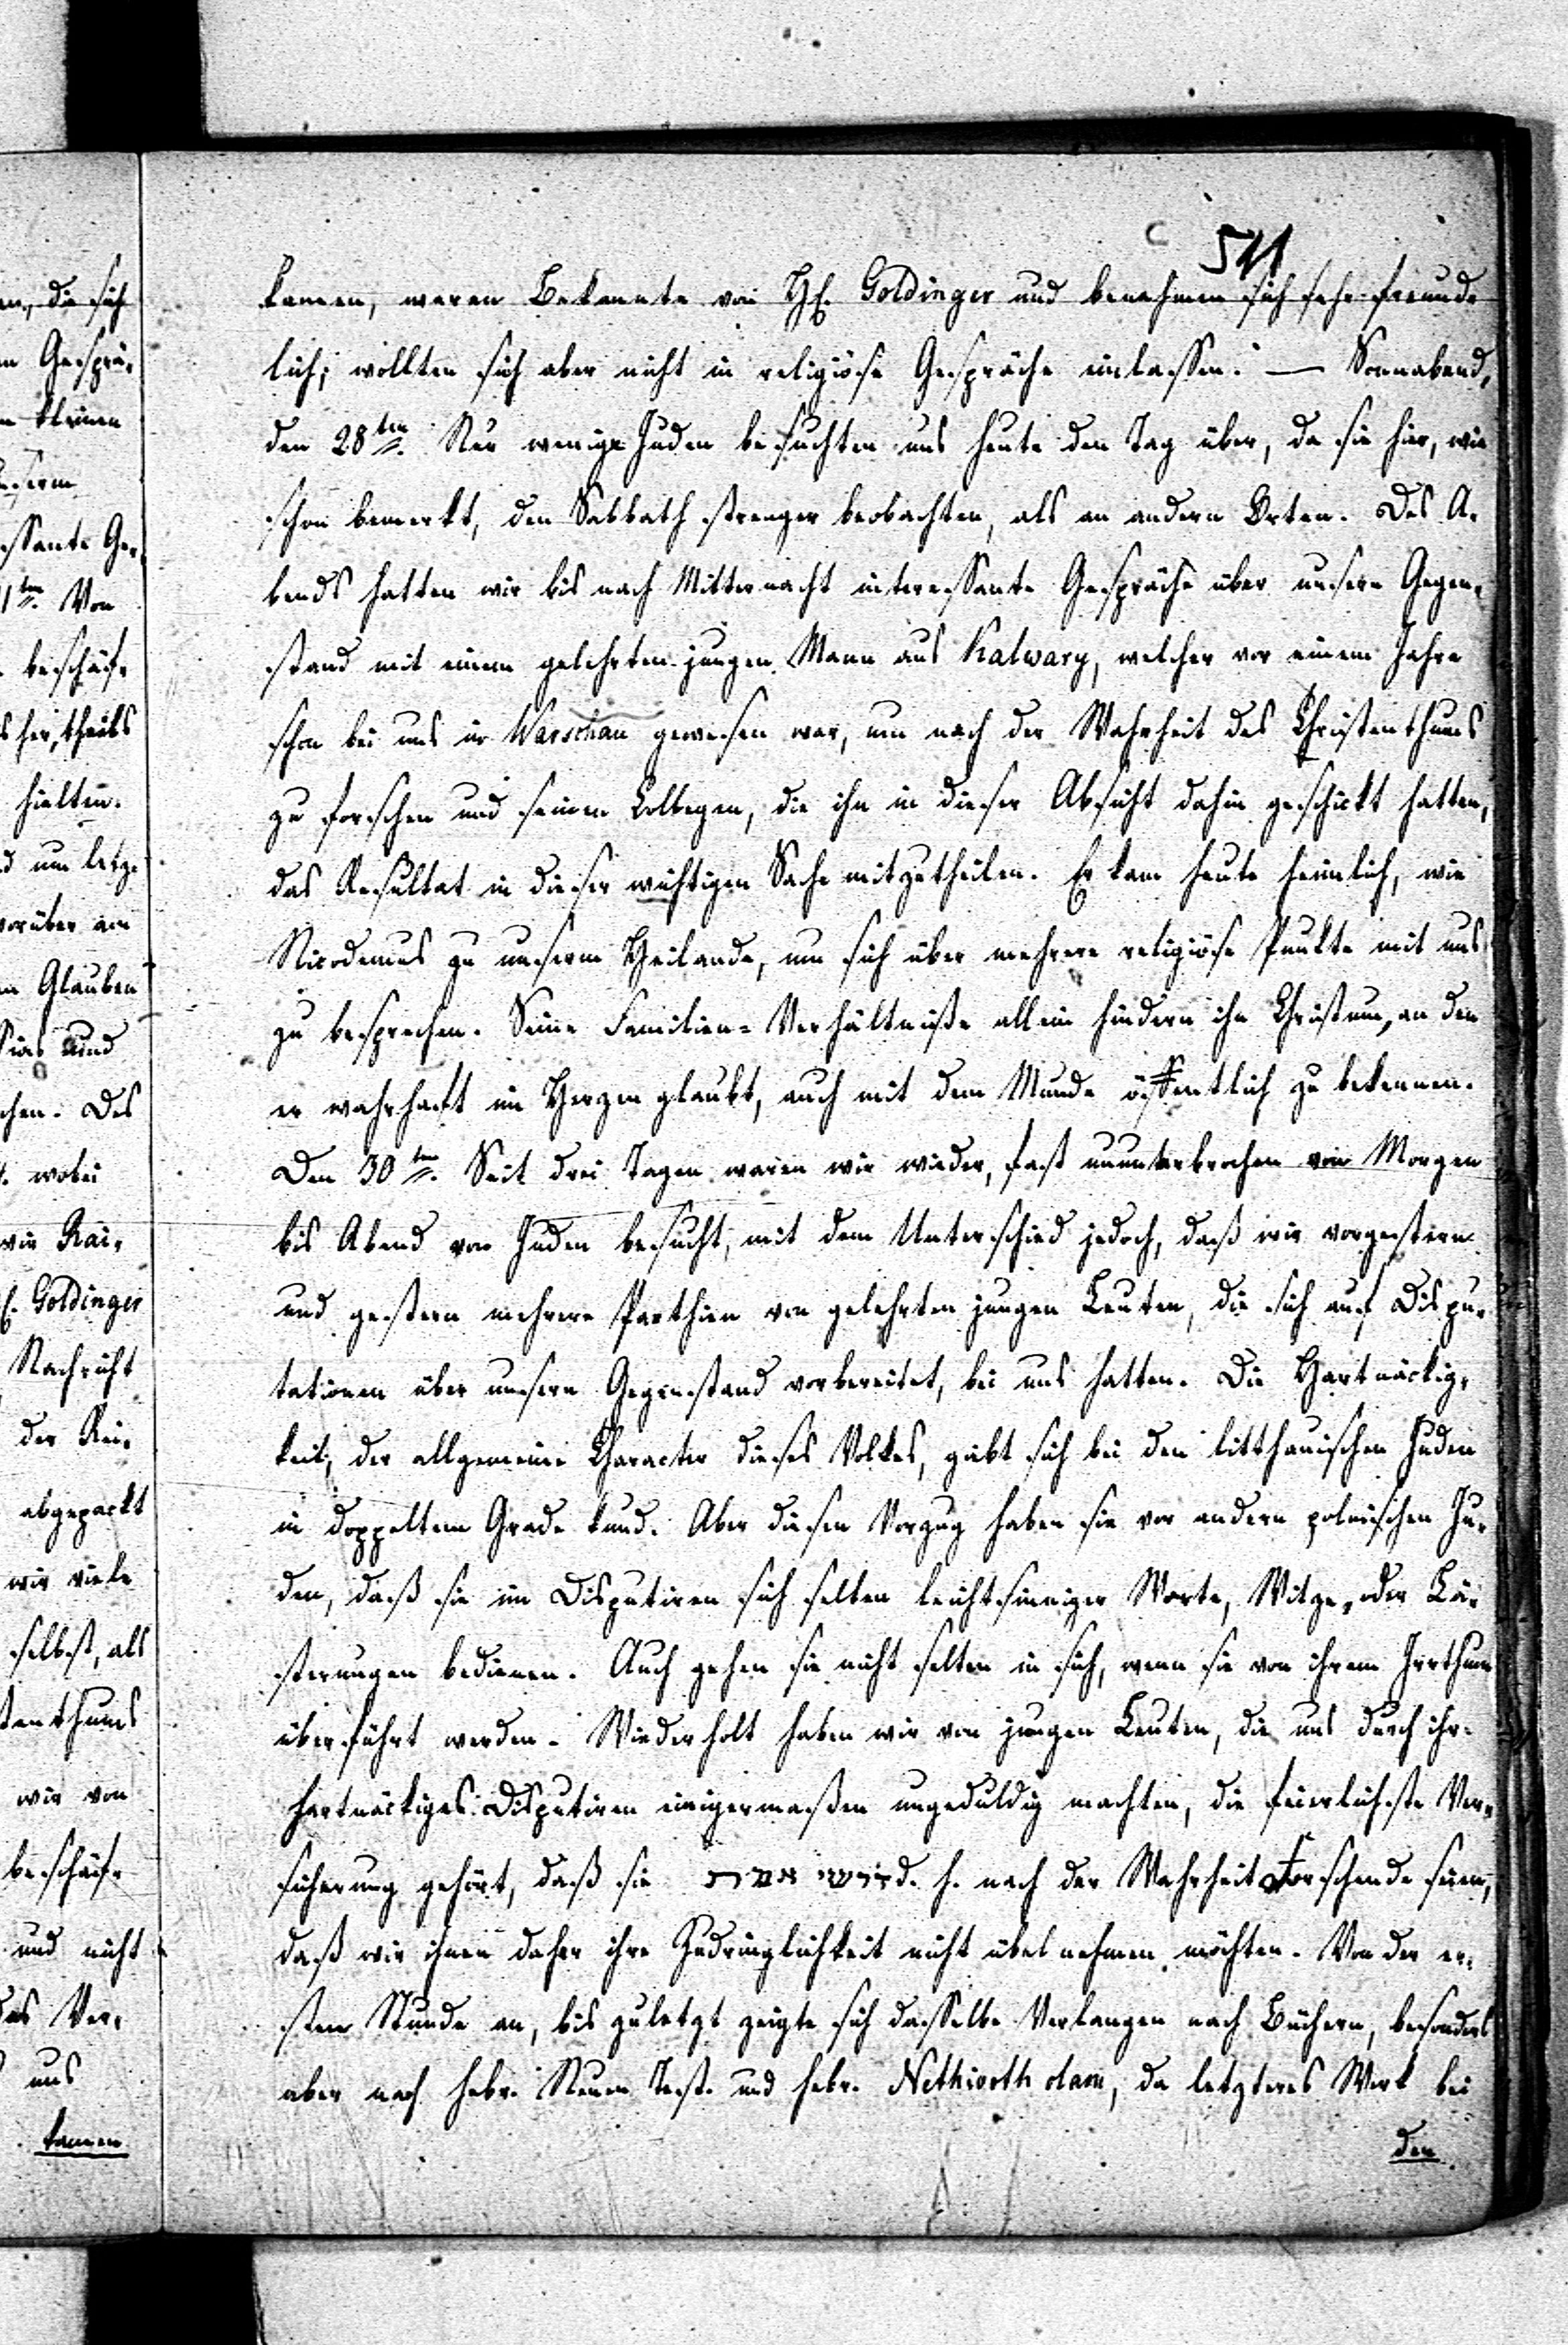 541
kamen, waren Bekannte von H. Goldinger und benahmen sich sehr freund-
lich; wollten sich aber nicht in religiöse Gespräche einlassen. — Sonnabend,
den 28ten. Nur wenige Juden besuchten uns heute den Tag über, da sie hier, wie
schon bemerkt, den Sabbath strenger beobachten, als an andern Orten. Des A-
bends hatten wir bis nach Mitternacht interessante Gespräche über unsern Gegen-
stand mit einem gelehrten jungen Mann aus Kalwary, welcher vor einem Jahre
schon bei uns in Warschau gewesen war, um nach der Wahrheit des Christenthums
zu forschen und seinen Collegen, die ihn in dieser Absicht dahin geschickt hatten,
das Resultat in dieser wichtigen Sache mitzutheilen. Er kam heute heimlich, wie
Nicodemus zu unserm Heilande, um sich über mehrere religiöse Punkte mit uns
zu besprechen. Seine Familien-Verhältniße allein hindern ihn Christum, an den
er wahrhaft im Herzen glaubt, auch mit dem Munde öffentlich zu bekennen.
Den 30ten. Seit drei Tagen waren wir wieder, fast ununterbrochen von Morgen
bis Abend von Juden besucht, mit dem Unterschied jedoch, daß wir vorgestern
und gestern mehrere Parthien von gelehrten jungen Leuten, die sich auf Dispu-
tationen über unsern Gegenstand vorbereitet, bei uns hatten. Die Hartnäckig-
keit, der allgemeine Character dieses Volkes, giebt sich bei den litthauischen Juden
in doppeltem Grade kund. Aber diesen Vorzug haben sie vor andern polnischen Ju-
den, daß sie im Disputiren sich selten leichtsinniger Worte, Witze, oder Lä-
sterungen bedienen. Auch gehen sie nicht selten in sich, wenn sie von ihrem Irrthum
überführt werden. Wiederholt haben wir von jungen Leuten, die uns durch ihr
hartnäckiges Disputiren einigermaßen ungeduldig machten, die feierlichste Ver-
sicherung gehört, daß sie d. h. nach der Wahrheit Forschende seien,
daß wir ihnen daher ihre Zudringlichkeit nicht übel nehmen möchten. Von der er-
sten Stunde an, bis zuletzt zeigte sich dasselbe Verlangen nach Büchern, besonders
aber nach hebr. Neuen Test. und hebr. Nethivoth olam, da letzteres Werk bei
den
en, die sich
Gesprä-
kleinen
unserm
essante Ge-
1ten Von
beschäf-
her, theils
hielten.
um letz-
worüber am
Glauben
und
chen. Des
wobei
wir Rai-
Goldinger
Nachricht
der Rei-
abgepackt
wir viele
selbst, als
stenthums
wir von
beschäf-
und nicht
das Ver-
uns
kamen